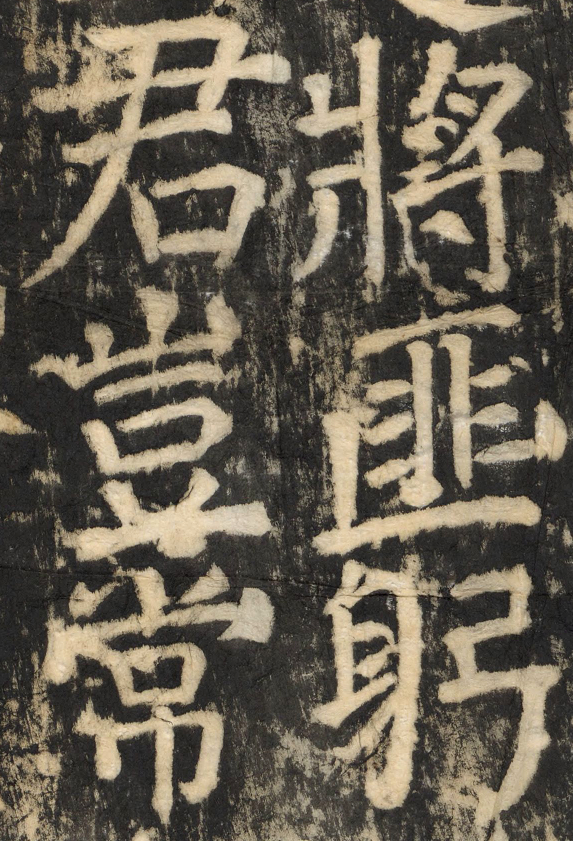 將匪躬
君豈常